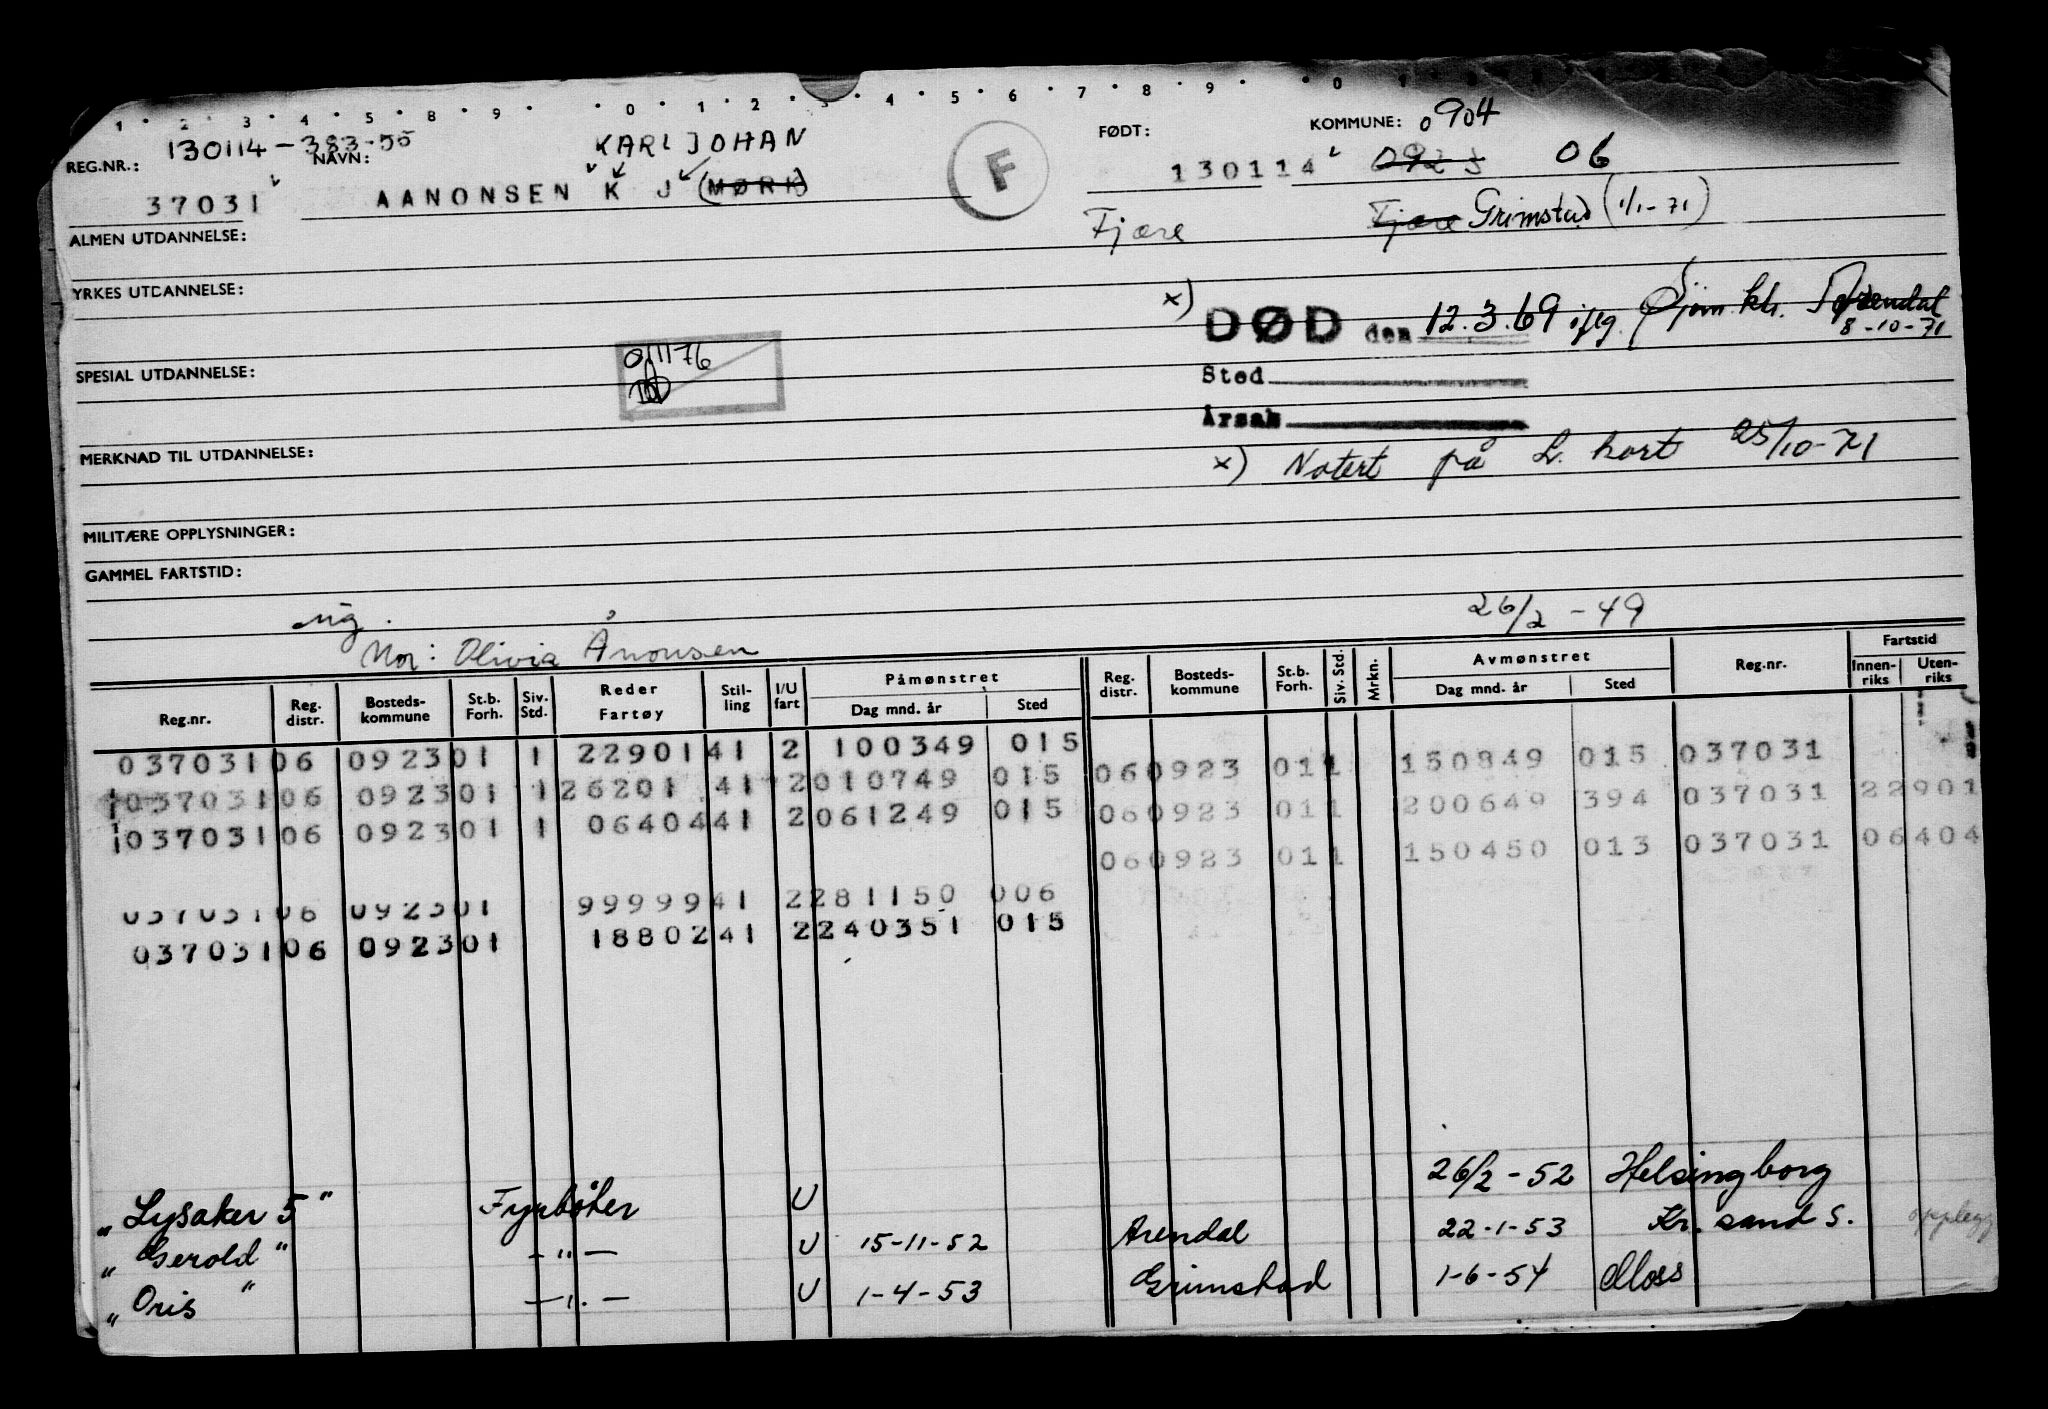 1 2 3 4 5 8 9 0 1 2 3 4 5 6 7 8 9 0 1
REG.NR.: 130114-383-55
NAVN: KARL JOHAN
37031 AANONSEN K J (MØRK)
F
FØDT: 130114
KOMMUNE: 0904
0923 06
Fjære Fjære Grimstad (1/1-71)
ALMEN UTDANNELSE:
YRKES UTDANNELSE:
x) DØD den 12.3.69 iflg. Sjøm.ktr. Arendal
8-10-71
SPESIAL UTDANNELSE:
1176
Sted
Årsak
MERKNAD TIL UTDANNELSE:
x) Notert på L. kort 25/10-71
MILITÆRE OPPLYSNINGER:
GAMMEL FARTSTID:
ug.
26/2-49
Mor: Olivia Ånonsen
Reg.nr. Reg. distr. Bosteds-kommune St.b. Forh. Siv. Std. Reder Fartøy Stil-ling I/U fart Påmønstret Dag mnd. år Sted Reg. distr. Bosteds-kommune St.b. Forh. Siv. Std. Mrkn. Avmønstret Dag mnd. år Sted Reg.nr. Fartstid Innen-riks Uten-riks
037031 06 0923 01 1 22901 41 2 100349 015
06 0923 01 1 150849 015 037031
037031 06 0923 01 1 26201 41 2 010749 015
06 0923 01 1 200649 394 037031 22901
037031 06 0923 01 1 06404 41 2 061249 015
06 0923 01 1 150450 013 037031 06404
037031 06 0923 01 99999 41 2 281150 006
037031 06 0923 01 18802 41 2 240351 015
"Lysaker 5" Fyrbøter U 26/2-52 Helsingborg
"Gerold" -"- U 15-11-52 Arendal 22-1-53 Kr.sand S. opplegg
"Oris" -"- U 1-4-53 Grimstad 1-6-54 Moss